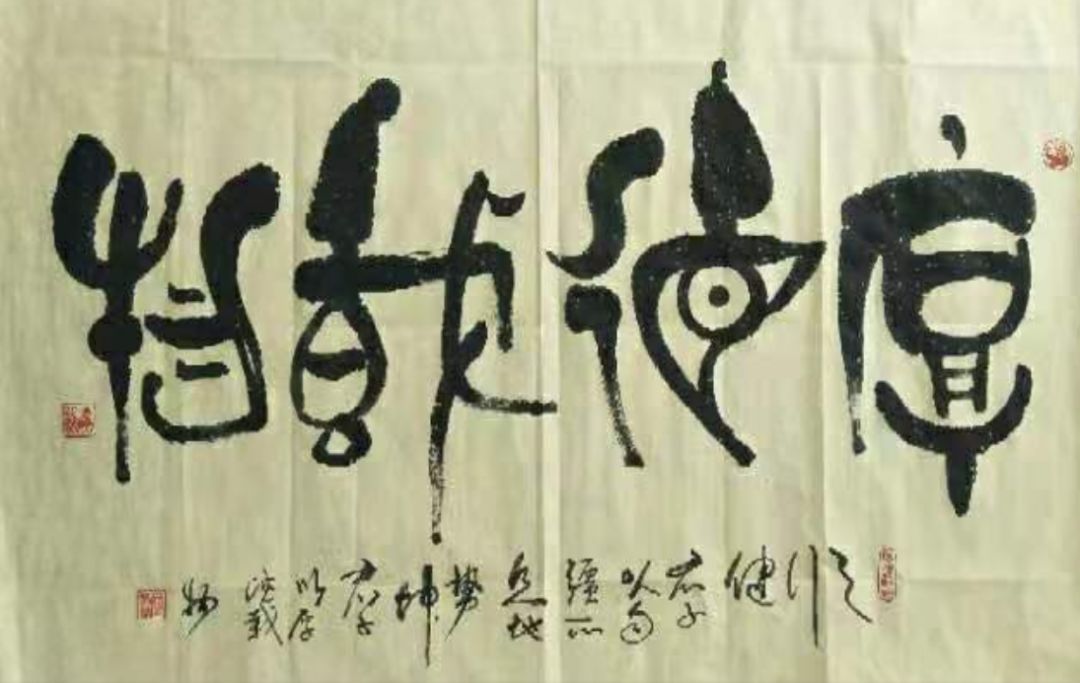 厚德載物
天行健君子以自彊不息地勢坤君子以厚德載物